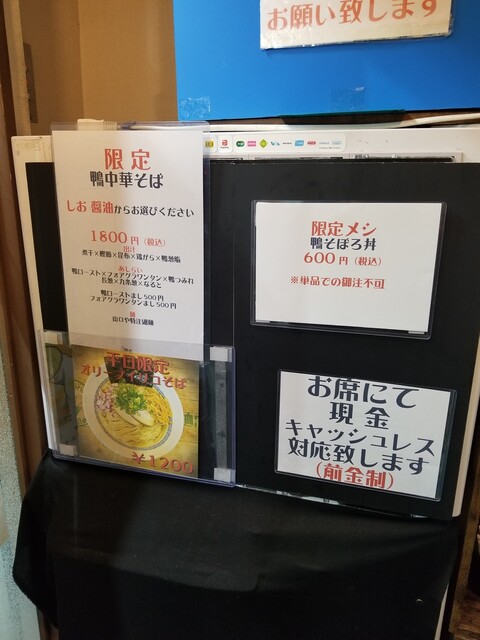 お願い致します
限定
鴨中華そば
しお 醤油からお選びください
1800円(税込)
出汁
煮干×鰹節×昆布×鶏がら×鴨地脂
あしらい
鴨ロースト×フォアグラワンタン×鴨つみれ
長葱×九条葱×なると
鴨ローストまし500円
フォアグラワンタンまし500円
麺
山口や特注細麺
平日限定
オリーブイリコそば
¥1200
限定メシ
鴨そぼろ丼
600円(税込)
※単品での御注不可
お席にて
現金
キャッシュレス
対応致します
(前金制)